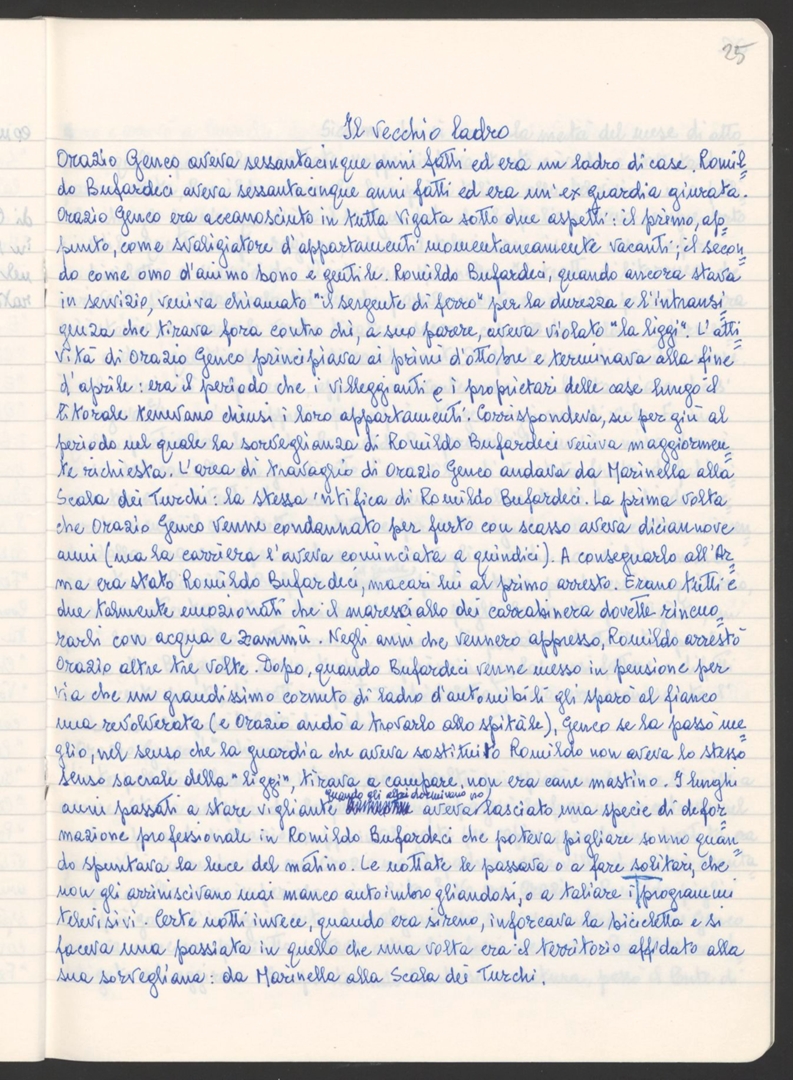 25
Il vecchio ladro
Orazio Genco aveva sessantacinque anni fatti ed era un ladro di case. Romil=
do Bufardeci aveva sessantacinque anni fatti ed era un'ex guardia giurata.
Orazio Genco era accanosciuto in tutta Vigata sotto due aspetti: il primo, ap=
punto, come svaligiatore d'appartamenti momentaneamente vacanti; il secon=
do come omo d'animo bono e gentile. Romildo Bufardeci, quando ancora stava
in servizio, veniva chiamato "il sergente di ferro" per la durezza e l'intransi=
genza che tirava fora contro chi, a suo parere, aveva violato "la liggi". L'atti=
vità di Orazio Genco principiava ai primi d'ottobre e terminava alla fine
d'aprile: era il periodo che i villeggianti e i proprietari delle case lungo il
litorale tenevano chiusi i loro appartamenti. Corrispondeva, su per giù al
periodo nel quale la sorveglianza di Romildo Bufardeci veniva maggiormen=
te richiesta. L'area di travaglio di Orazio Genco andava da Marinella alla
Scala dei Turchi: la stessa 'ntifica di Romildo Bufardeci. La prima volta
che Orazio Genco venne condannato per furto con scasso aveva diciannove
anni (ma la carriera l'aveva cominciata a quindici). A consegnarlo all'Ar=
ma era stato Romildo Bufardeci, macari lui al primo arresto. Erano tutti e
due talmente emozionati che il maresciallo dei carrabinera dovette rincuo=
rarli con acqua e zammù. Negli anni che vennero appresso, Romildo arrestò
Orazio altre tre volte. Dopo, quando Bufardeci venne messo in pensione per
via che un grandissimo cornuto di ladro d'automibili gli sparò al fianco
una revolverata (e Orazio andò a trovarlo allo spitàle), Genco se la passò me=
glio, nel senso che la guardia che aveva sostituito Romildo non aveva lo stesso
senso sacrale della "liggi", tirava a campare, non era cane mastino. I lunghi
quando gli altri dormivano no)
anni passati a stare vigliante aveva lasciato una specie di defor=
mazione professionale in Romildo Bufardeci che poteva pigliare sonno quan=
do spuntava la luce del matino. Le nottate le passava o a fare solitari, che
non gli arriniscivano mai manco autoimbrogliandosi, o a taliare i programmi
televisivi. Certe notti invece, quando era sireno, inforcava la bicicletta e si
faceva una passiata in quello che una volta era il territorio affidato alla
sua sorvegliana: da Marinella alla Scala dei Turchi.